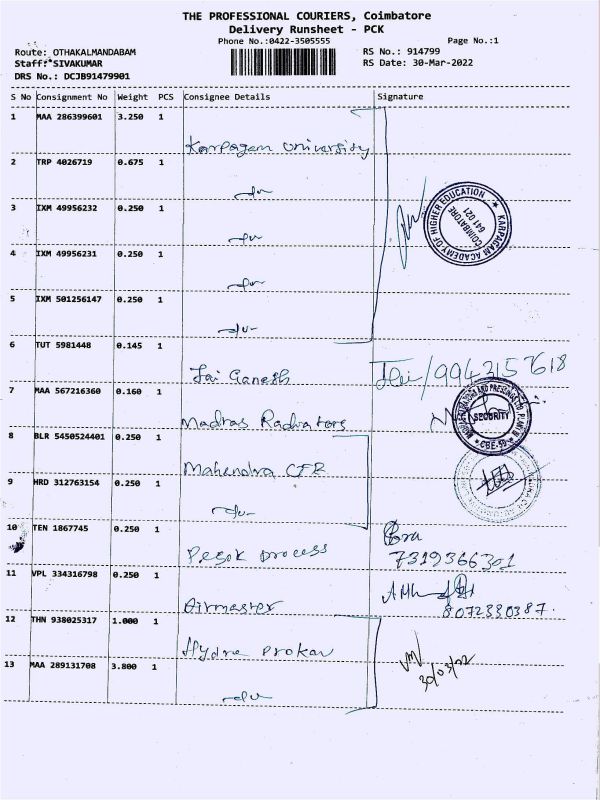 THE PROFESSIONAL COURIERS, Coimbatore
Delivery Runsheet - PCK
Phone No.:0422-3505555 Page No.:1
Route: OTHAKALMANDABAM RS No.: 914799
Staff: SIVAKUMAR RS Date: 30-Mar-2022
DRS No.: DCJB91479901
S No Consignment No Weight PCS Consignee Details Signature
1 MAA 286399601 3.250 1
Karpagam University
2 TRP 4026719 0.675 1
-do-
3 IXM 49956232 0.250 1
-do-
4 IXM 49956231 0.250 1
-do-
5 IXM 501256147 0.250 1
-do-
KARPAGAM ACADEMY OF HIGHER EDUCATION
COIMBATORE
641 021
6 TUT 5981448 0.145 1
Jai Ganesh 9943157618
7 MAA 567216360 0.160 1
Madras Radiators
SECURITY
CBE-50
8 BLR 5450524401 0.250 1
Mahendra CIR
9 HRD 312763154 0.250 1
-do-
10 TEN 1867745 0.250 1
Pesok process 7319366301
11 VPL 334316798 0.250 1
Airmaster 8072330387.
12 THN 938025317 1.000 1
Hydro Prokav
13 MAA 289131708 3.800 1
30/03/22
-do-